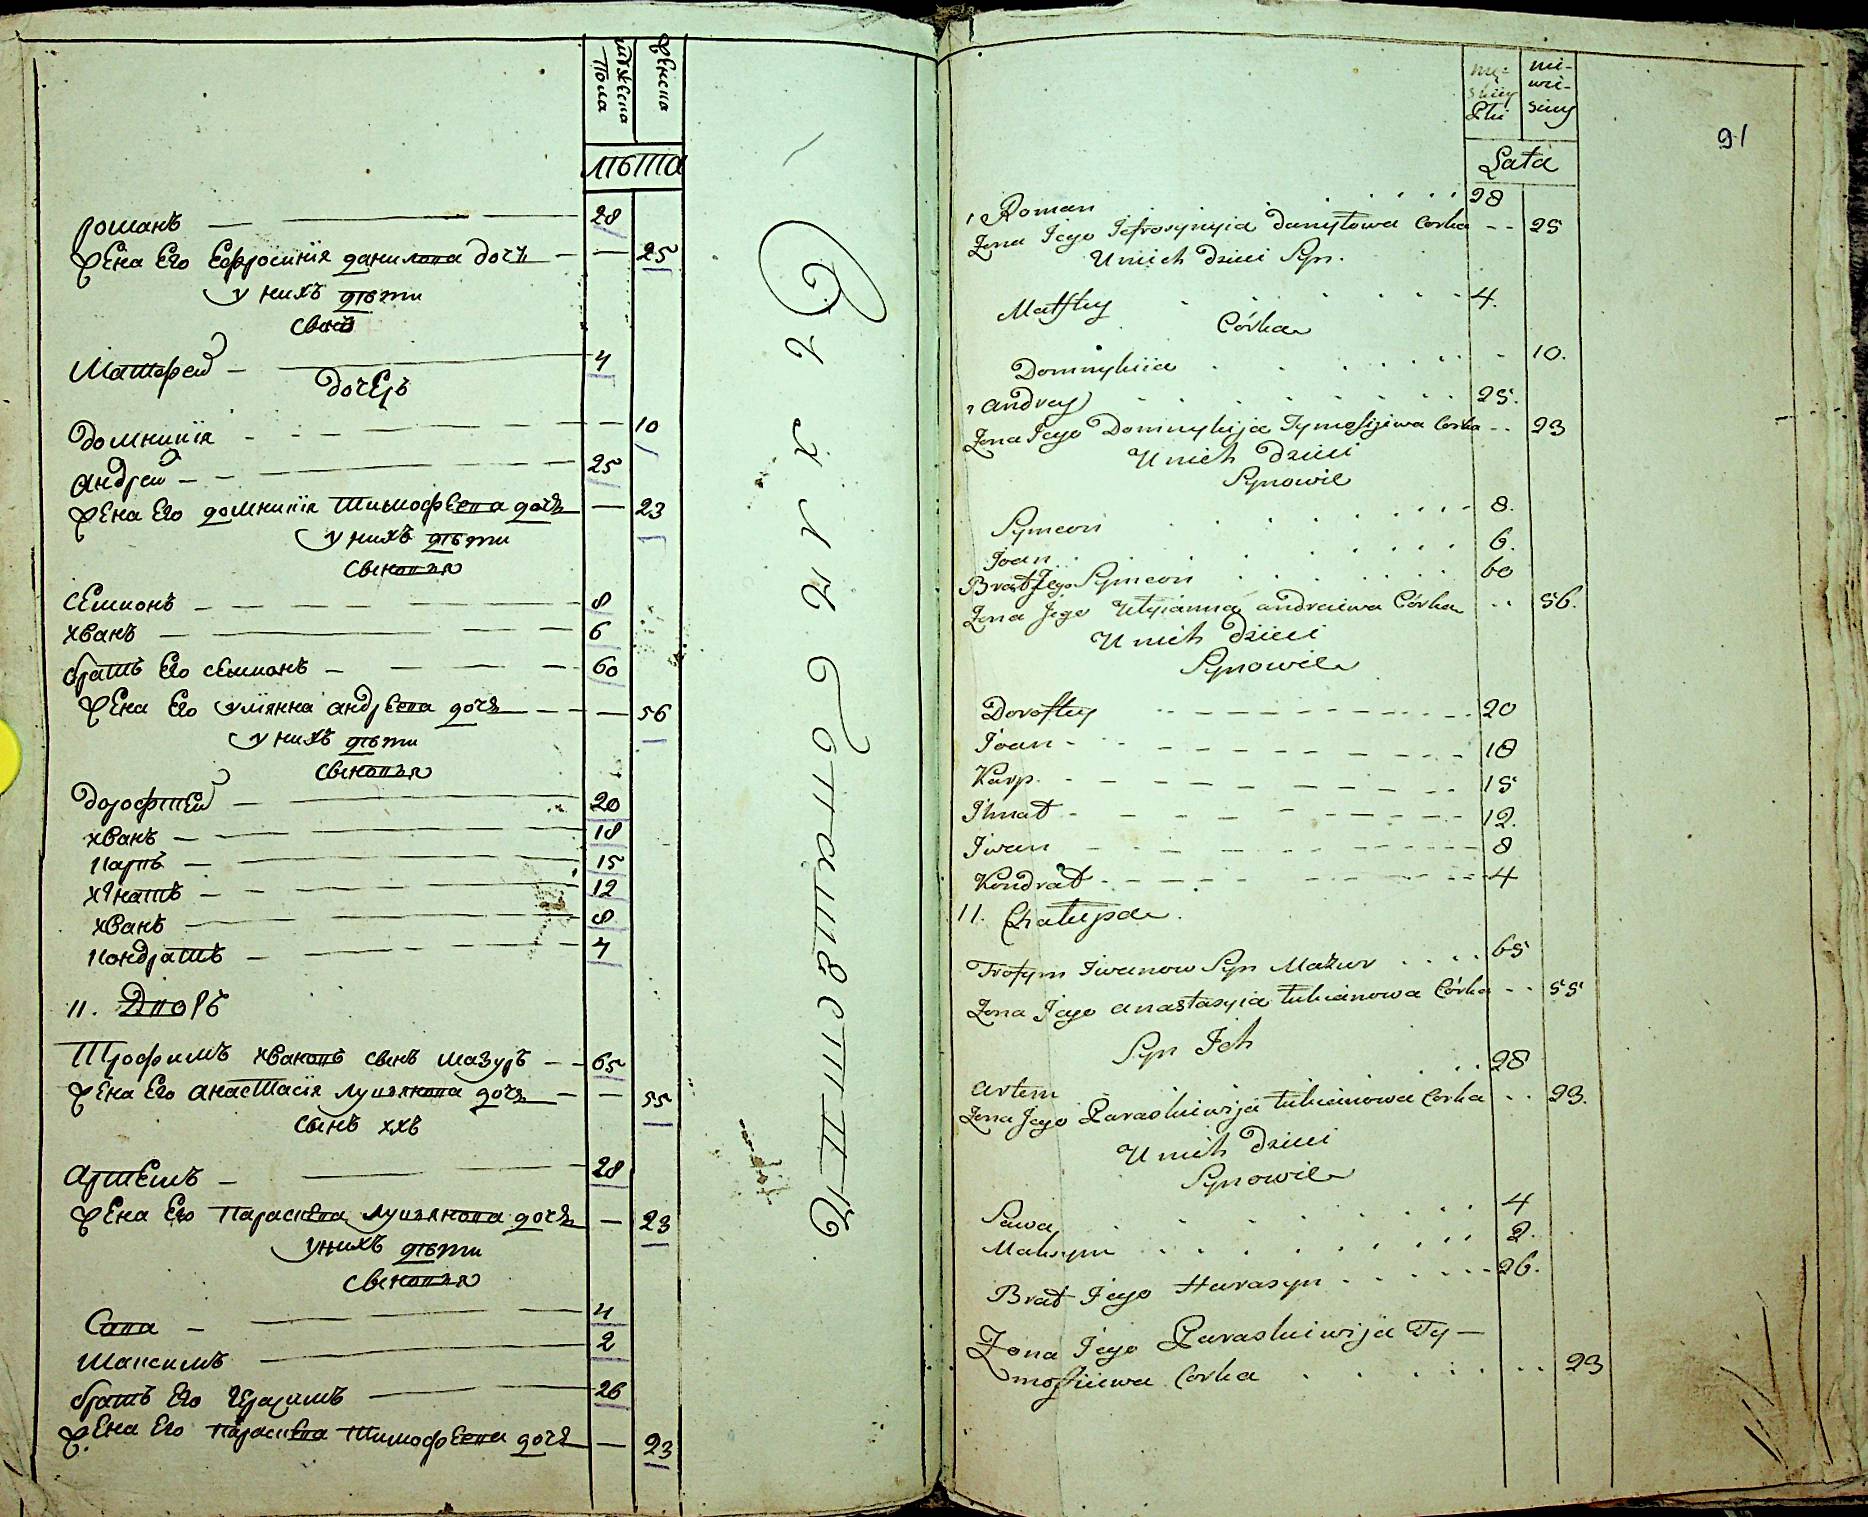 мужеска пола
женска
лѣта
Романъ — 28
жена Его Ефросинїя данилова дочъ — — 25
у нихъ дѣти
сынъ
Матфей — 4
дочеръ
домникїя — — 10
андрей — 25
жена Его домникїя тимофеева дочъ — 23
у нихъ дѣти
сыновья
семионъ — 8
хванъ — 6
братъ Его семионъ — 60
жена Его улїянна андреева дочъ — — 56
у нихъ дѣти
сыновья
дорофтей — 20
хванъ — 18
карпъ — 15
хгнатъ — 12
хванъ — 8
кондратъ — 4
11. Дворъ
Трофимъ хвановъ сынъ мазуръ — 65
жена Его анастасїя лукьянова дочъ — — 55
сынъ ихъ
артемъ — 28
жена Его параскева лукьянова дочъ — 23
у нихъ дѣти
сыновья
Сава — 4
максимъ — 2
братъ Его герасимъ — 26
жена Его параскева тимофеева дочъ — 23
męskiey Płci
niewieściey
Lata
91
Roman 28
Zona Jego Jefrosynyia Danyłowa Corka 25
U nich Dzieci Syn.
Matftey 4.
Córka
Domnykiia 10.
Andrey 25.
Zona Jego Domnykija Tymofijewa Corka 23
U nich Dzieci
Synowie
Symeon 8.
Joan 6.
Brat Jego Symeon 60
Zona Jego Ulyianna Andreiewa Córka 56.
U nich Dzieci
Synowie
Doroftey 20
Joan 18
Karp 15
Ihnat 12.
Iwan 8
Kondrat 4
11. Chałupa.
Trofym Iwanow Syn Mazur 65
Zona Jego Anastasyia Łukianowa Córka 55
Syn Ich
Artem 28
Zona Jego Paraskiewija Łukianowa Corka 23.
U nich Dzieci
Synowie
Sawa 4
Maksym 2.
Brat Jego Harasym 26.
Zona Jego Paraskiewija Ty-
mofiiewa Corka 23